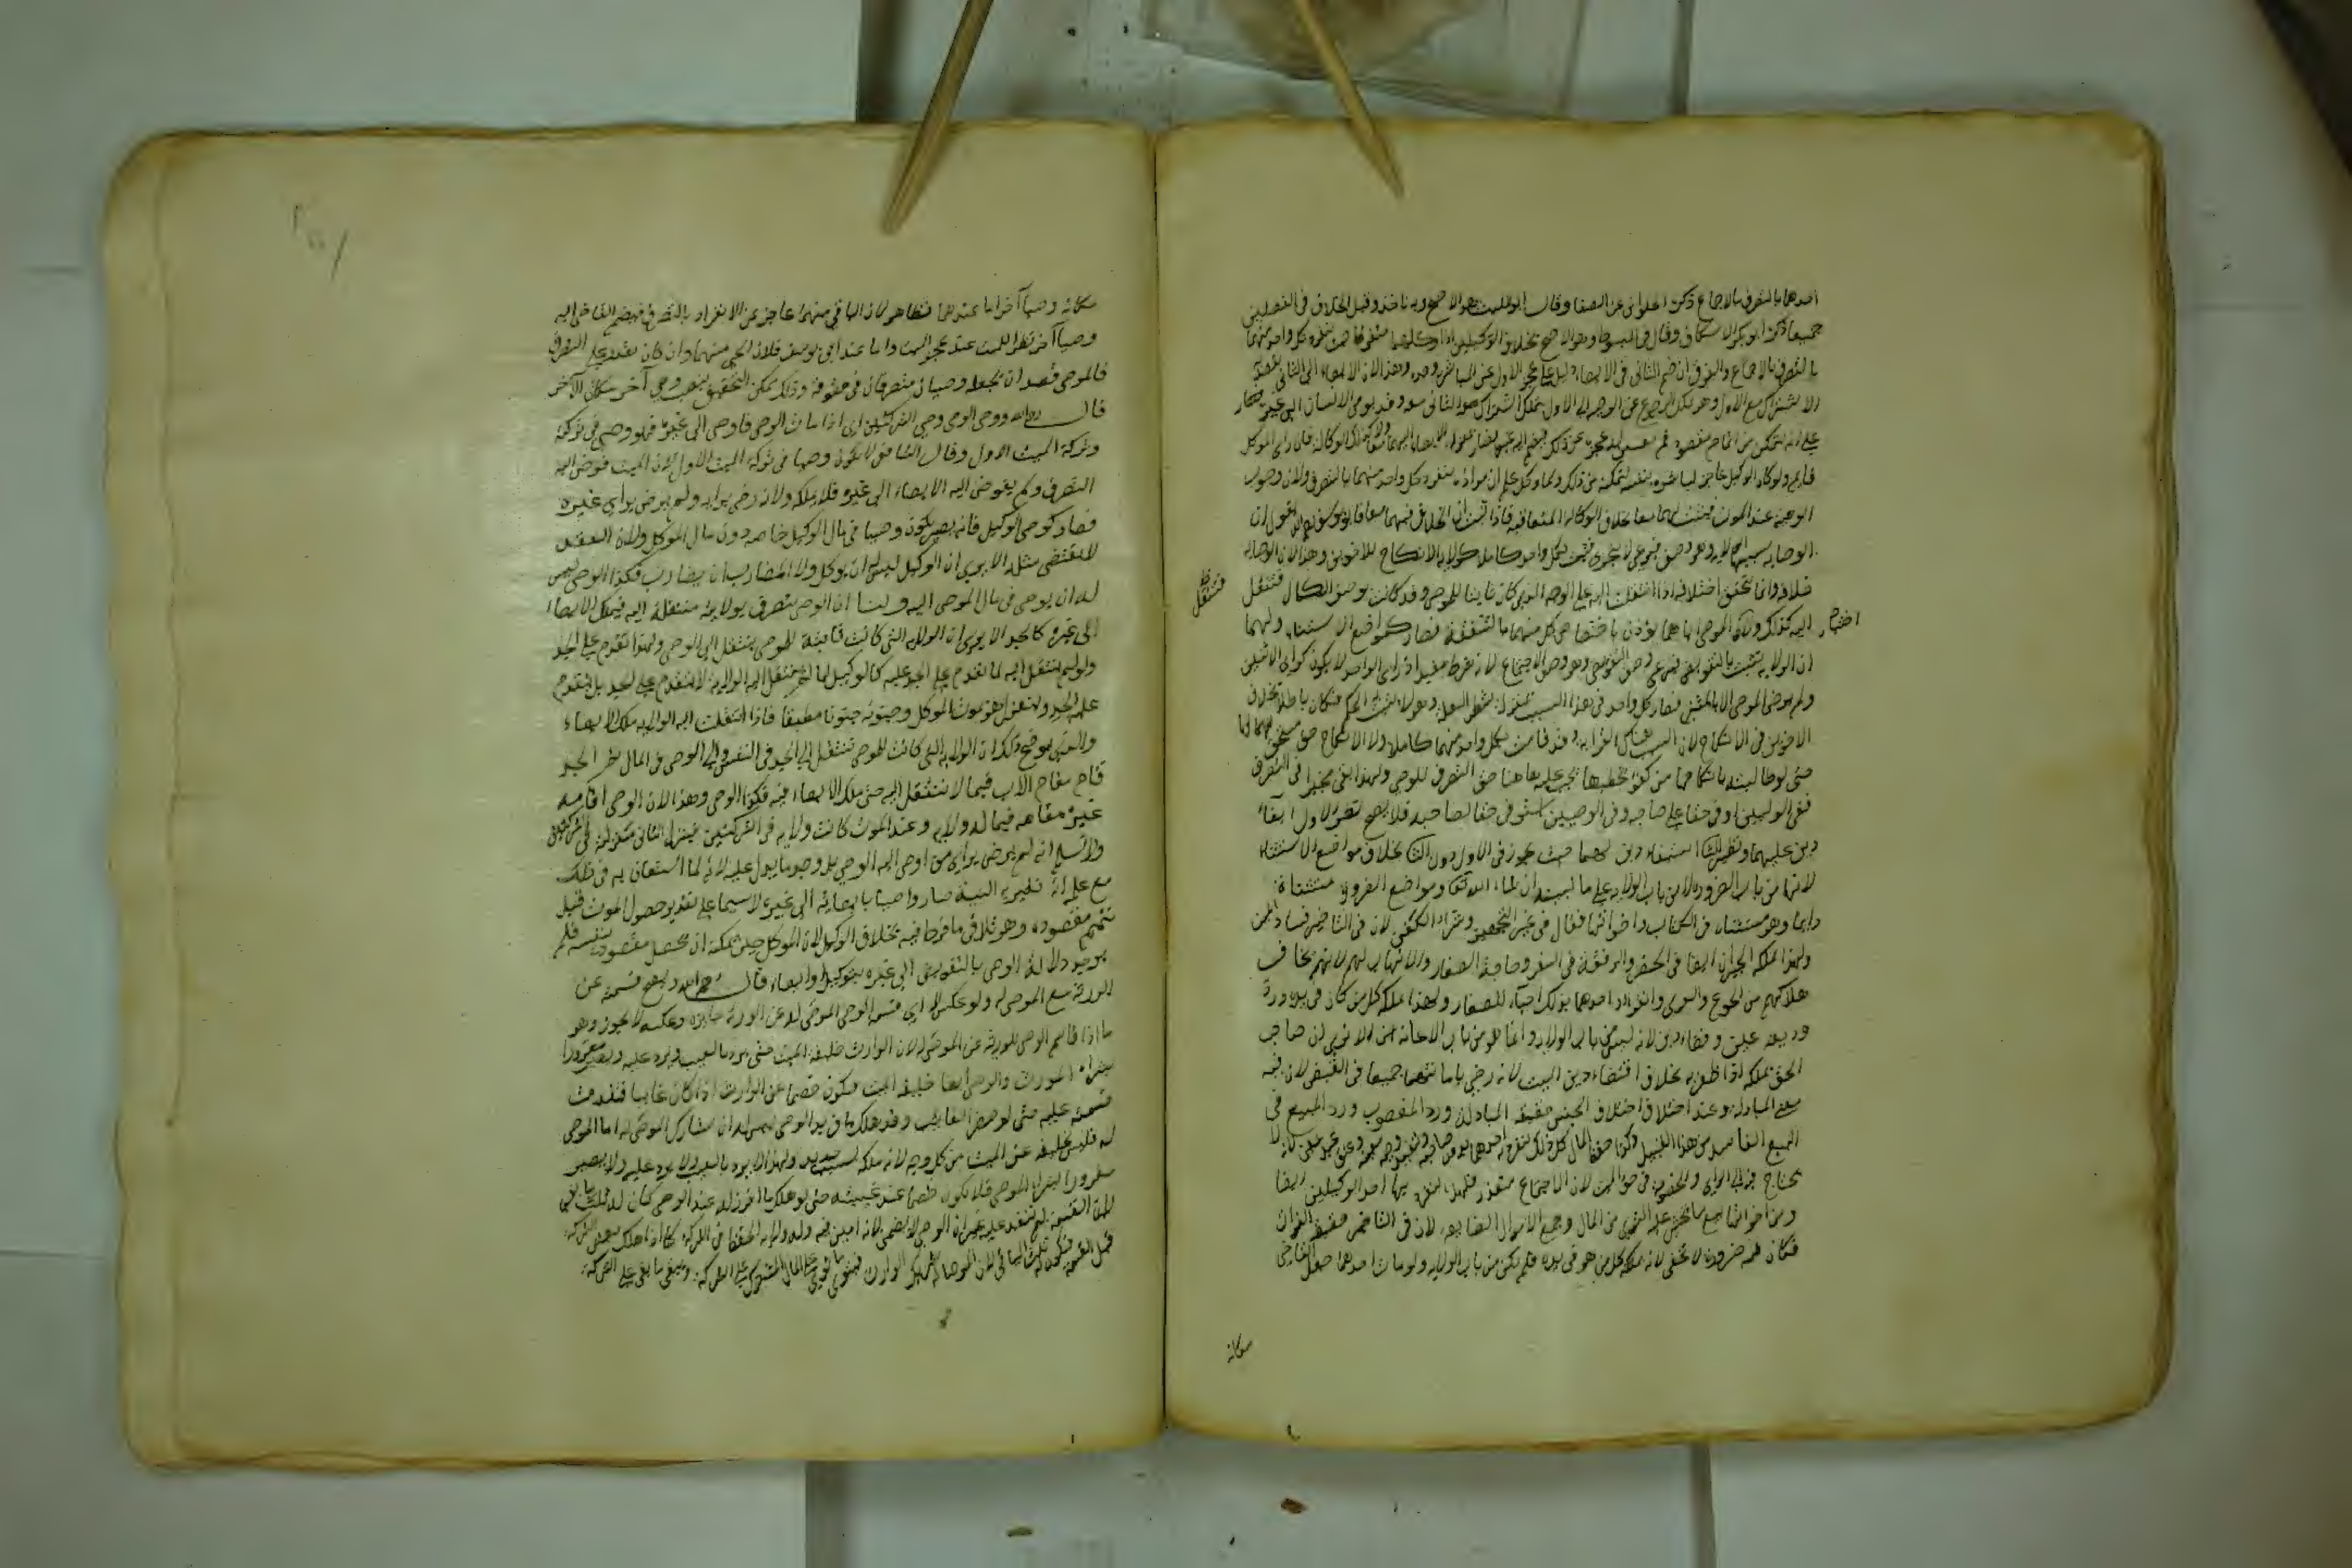 احدهما بالتصرف بالاجماع ذكره الحلواني عن الصفار وقال ابو الليث هو الاصح وبه ناخذ وقيل الخلاف في الفصلين
جميعا ذكره ابو بكر الاسكاف وقال في المبسوط وهو الاصح بخلاف الوكيلين اذا وكلهما متفرقا حيث ينفرد كل واحد منهما
بالتصرف بالاجماع والفرق ان ضم الثاني في الايصاء دليل على عجز الاول عن المباشرة وحده وهذا لان الايصاء الى الثاني يقصد به
الاشتراك مع الاول وهو يملك الرجوع عن الوصية الى الاول فيملك اشتراك الثاني معه وقد يوصي الانسان الى غيره
على انه يتمكن من اتمام مقصوده ثم يتبين له عجزه عن ذلك فيضم اليه غيره فصار بمنزلة الايصاء اليهما معا ولا كذلك الوكالة فان راي الموكل
قايم ولو كان الوكيل عاجزا لباشره بنفسه لتمكنه من ذلك ولما وكل علم ان مراده ينفرد كل واحد منهما بالتصرف ولان وجوب
الوصية عند الموت فيثبت لهما معا بخلاف الوكالة المتعاقبة فاذا ثبت ان الخلاف فيهما معا فابو يوسف رحمه الله يقول ان
الوصاية سبيلها الولاية وهو وصف شرعي لا يتجزى فيثبت لكل واحد كاملا كولاية الانكاح للاخوين وهذا لان الوصاية
خلافة وانما تتحقق الخلافة اذا انتقلت اليه على الوجه الذي كان ثابتا للموصي وقد كانت بوصف الكمال فتنتقل
فتنتقل
اليه كذلك ولان الموصي اياهما يؤذن باختصاص كل منهما بالشفقة فصار كمواضع الاستثناء ولهما
اختيار
ان الولاية تثبت بالتفويض فيراعى وصف التفويض وهو وصف الاجتماع لانه شرط مفيد اذ راي الواحد لا يكون كراي الاثنين
ولم يرض الموصي الا بالمثنى فصار كل واحد في هذا السبب بمنزلة شطر العلة وهو لا يثبت به الحكم فكان باطلا بخلاف
الاخوين في الانكاح لان السبب هناك القرابة وقد قامت بكل واحد منهما كاملا ولان الانكاح حق مستحق لها
حتى لو طالبته بانكاحها من كفؤ يخطبها يجب عليه وهاهنا حق التصرف للوصي ولهذا بقي مخيرا في التصرف
ففي الوليين اوفى حقا على صاحبه وفي الوصيين استوفى حقا لصاحبه فلا يصح نظيره الاول ايفاء
دين عليهما ونظير الثاني استيفاء دين لهما حيث يجوز في الاول دون الثاني بخلاف مواضع الاستثناء
لانها من باب الضرورة لا من باب الولاية على ما نبينه ان شاء الله تعالى ومواضع الضرورة مستثناة
دايما وهو مستثناه في الكتاب واخواتها فقال في غير التجهيز وشراء الكفن لان في التاخير فساد الميت
ولهذا يملكه الجيران ايضا في الحضر والرفقة في السفر وحاجة الصغار والاتهاب لهم لانهم يخاف
هلاكهم من الجوع والعري وانفراد احدهما بذلك احياء للصغار ولهذا يملكه كل من كان في يده ورد
وديعة عين وقضاء دين لانه ليس من باب الولاية وانما هو من باب الاعانة الا ترى ان صاحب
الحق يملكه اذا ظفر به بخلاف اقتضاء دين الميت لانه رضي بامانتهما جميعا في القبض لان فيه
معنى المبادلة وعند اختلاف الجنس حقيقة المبادلة ورد المغصوب ورد المبيع في
البيع الفاسد من هذا القبيل وكذا حفظ المال
يحتاج فيها الى الراي والخصومة في حق الميت لان الاجتماع متعذر ولهذا ينفرد بها احد الوكيلين ايضا
ومن اخواتها بيع ما يخشى عليه التوى من المال وجمع الاموال الضايعة لان في التاخير خشية الفوات
فكان فيه ضرورة لا تخفى لانه يملكه كل من هو في يده فلم يكن من باب الولاية ولو مات احدهما جعل القاضي
مكانه
مكانه وصيا آخر اما عندهما فظاهر لان الباقي منهما عاجز عن الانفراد بالتصرف فيضم القاضي اليه
وصيا آخر نظرا للميت عند عجز الميت واما عند ابي يوسف فلان الحي منهما وان كان يقدر على التصرف
فالموصي قصد ان يجعله وصيان متصرفان في حقوقه وذلك ممكن التحقيق بنصب وصي آخر مكان الآخر
قال رحمه الله ووصي الوصي وصي التركتين اي اذا مات الوصي فاوصى الى غيره فهو وصي في تركته
وتركة الميت الاول وقال الشافعي لا يكون وصيا في تركة الميت الاول لان الميت فوض اليه
التصرف ولم يفوض اليه الايصاء الى غيره فلا يملكه ولانه رضي برايه ولم يرض براي غيره
فصار كوصي الوكيل فانه يكون وصيا في مال الوكيل خاصة دون مال الموكل ولان العقد
لا يقتضي مثله الا يرى ان الوكيل ليس له ان يوكل ولا المضارب ان يضارب فكذا الوصي ليس
له ان يوصي في مال الموصي اليه ولنا ان الوصي يتصرف بولاية منتقلة اليه فيملك الايصاء
الى غيره كالجد الا يرى ان الولاية التي كانت ثابتة للموصي تنتقل الى الوصي ولهذا يقدم على الجد
ولو لم تنتقل اليه لما تقدم على الجد عليه كالوكيل لما لم تنتقل اليه الولاية لا يتقدم على الجد بل يتقدم
عليه الجد وينعزل هو بموت الموكل وجنونه جنونا مطبقا فاذا انتقلت اليه الولاية ملك الايصاء
والذي يوضح ذلك ان الولاية التي كانت للموصي تنتقل الى الجد في النفس والى الوصي في المال ثم الجد
قام مقام الاب فيما لا تنتقل اليه حتى ملك الايصاء فيه فكذا الوصي وهذا لان الوصي اقام
غيره مقامه فيما له ولاية وعند الموت كانت ولاية في التركتين فينزل الثاني منزلته في التركتين
ولا نسلم انه لم يرض براي من اوصى اليه الوصي بل وجد ما يدل عليه لانه لما استعان به في ذلك
مع علمه انه تعتريه المنية صار راضيا بايصائه الى غيره لا سيما على تقدير حصول الموت قبل
تتميم مقصوده وهو تلافي ما فرط فيه بخلاف الوكيل لان الموكل حي يمكنه ان يحصل مقصوده بنفسه فلم
يوجد دلالة الرضى بالتفويض الى غيره بتوكيل او ايصاء قال رحمه الله وتصح قسمته عن
الورثة مع الموصى له ولو عكس لا اي قسمة الوصي الموصى له عن الورثة جايزة وعكسه لا يجوز وهو
ما اذا قاسم الوصي الورثة عن الموصى له لان الوارث خليفة الميت حتى يرد بالعيب ويرد عليه ويصير مغرورا
بشراء المورث والوصي ايضا خليفة الميت فيكون خصما عن الوارث اذا كان غايبا فنفذت
قسمته عليه حتى لو حضر الغايب وقد هلك ما في يد الوصي ليس له ان يشارك الموصى له اما الموصى
له فليس بخليفة عن الميت من كل وجه لانه ملكه بسبب جديد ولهذا لا يرد بالعيب ولا يرد عليه ولا يصير
مغرورا بشراء الموصي فلا يكون خصما عنه عند غيبته حتى لو هلك ما افرز له عند الوصي كان له ثلث ما بقي
لان القسمة لم تنفذ عليه غير ان الوصي لا يضمن لانه امين فيه وله ولاية الحفظ في التركة كما اذا هلك بعض التركة
قبل القسمة فيكون له ثلث الباقي لان الموصى له شريك الوارث فيتوى ما توى من المال المشترك على الشركة ويبقى ما بقي على الشركة